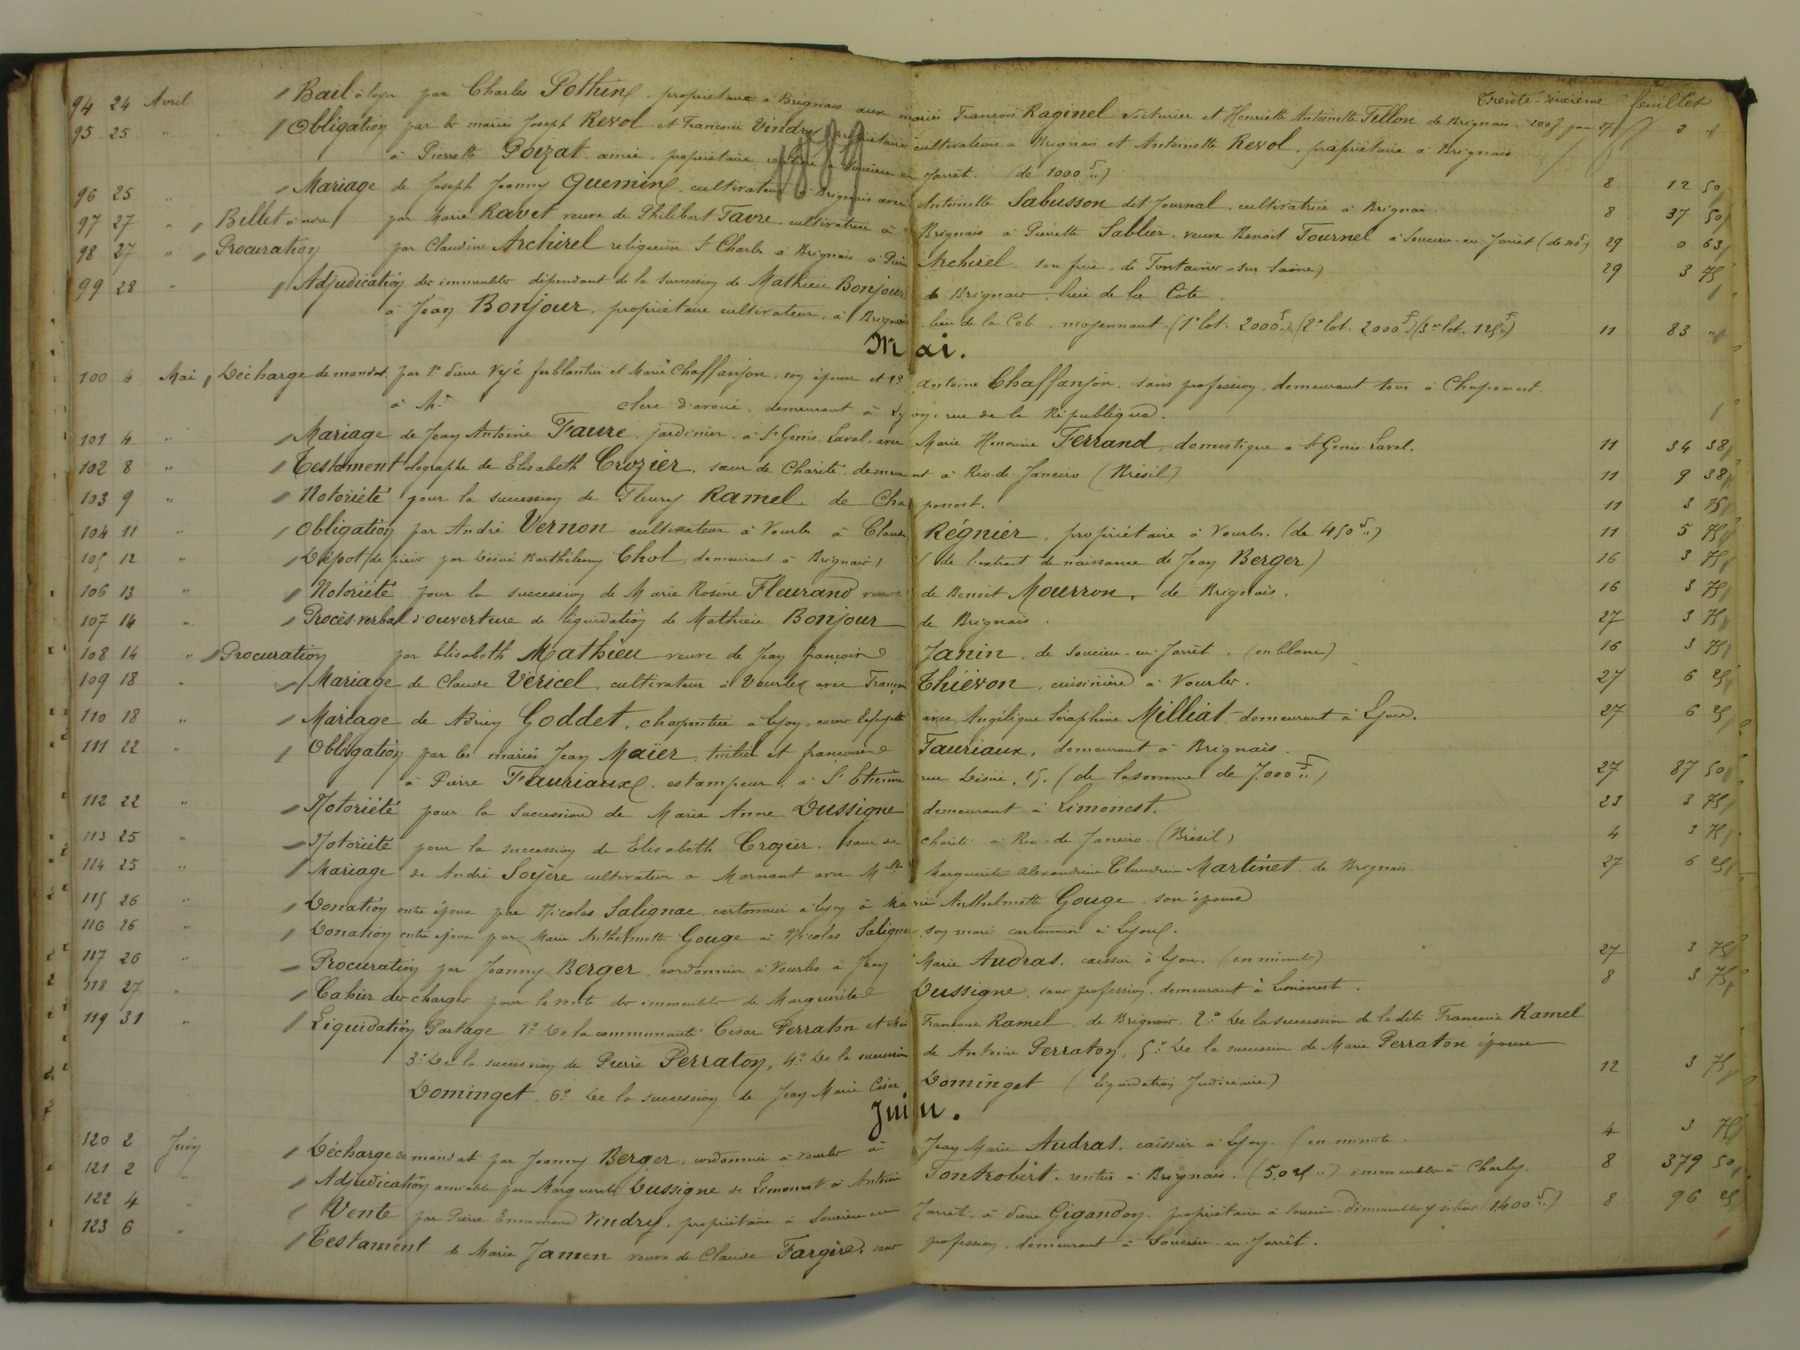 Trente-sixième feuillet
94 24 Avril Bail à loyer par Charles Pothin, propriétaire à Brignais aux mariés François Raginel voiturier et Henriette Antoinette Tillon de Brignais
95 25 " Obligation par les mariés Joseph Revol et Françoise Vindry propriétaires cultivateurs à Brignais et Antoinette Revol, propriétaire à Brignais
1889
à Pierrette Pouzat aînée, propriétaire à Soucieu en Jarrêt. (de 1000 f) 8 12 50
96 25 " Mariage de Joseph Joanny Guemin, cultivateur à Brignais avec Antoinette Sabusson dit Journal, cultivatrice à Brignais. 8 37 50
97 27 " Billet à ordre par Marie Ravet veuve de Philibert Favre cultivatrice à Brignais à Pierrette Sablier veuve Benoit Tournel à Soucieu-en-Jarrêt 29 0 63
98 27 " Procuration par Claudine Archirel religieuse St Charles à Brignais à Archirel son frère de Fontaines-sur-Saône) 29 3 75
99 28 " Adjudication des immeubles dépendant de la succession de Mathieu Bonjour de Brignais, lieu de la Côte.
à Jean Bonjour, propriétaire cultivateur, à Brignais lieu de la Côte, moyennant (1er lot. 2000 f) (2e lot. 2000 f) (3e lot. 125 f) 11 83 "
Mai.
100 4 Mai Décharge de mandat par 1° Pierre Vyé ferblantier et Marie Chaffanjon, son épouse et 2° Antoine Chaffanjon, sans profession, demeurant tous à Chaponost
à Me clerc d'avoué, demeurant à Lyon, rue de la République.
101 4 " Mariage de Jean Antoine Faure, jardinier, à St Genis Laval avec Marie Honorine Ferrand, domestique à St Genis-Laval. 11 34 38
102 8 " Testament olographe de Elisabeth Crozier, sœur de Charité demeurant à Rio-de-Janeiro (Brésil) 11 9 38
103 9 " Notoriété pour la succession de Fleury Ramel de Chaponost. 11 3 75
104 11 " Obligation par André Vernon cultivateur à Vourles à Claude Régnier, propriétaire à Vourles. (de 450 f) 11 5 75
105 12 " Dépôt de pièce par Désiré Barthélemy Chol, demeurant à Brignais, (de l'extrait de naissance de Jean Berger) 16 3 75
106 13 " Notoriété pour la succession de Marie Rosine Fleurand veuve de Benoit Mourron, de Brignais. 16 3 75
107 14 " Procès-verbal d'ouverture de liquidation de Mathieu Bonjour de Brignais. 27 3 75
108 14 " Procuration par Elisabeth Mathieu veuve de Jean François Janin, de Soucieu-en-Jarrêt. (en blanc) 16 3 75
109 18 " Mariage de Claude Vericel, cultivateur à Vourles avec Thiévon, cuisinière à Vourles. 27 6 25
110 18 " Mariage de Goddet, charpentier à Lyon, cours Lafayette avec Angélique Séraphine Milliat demeurant à Lyon. 27 6 25
111 22 " Obligation par les mariés Jean Maïer, et Françoise Fauriaux, demeurant à Brignais.
à Pierre Fauriaux, estampeur, à St Etienne rue Désiré, 15. (de la somme de 7.000 f) 27 87 50
112 22 " Notoriété pour la Succession de Marie Anne Dussigne demeurant à Limonest. 23 3 75
113 25 " Notoriété pour la succession de Elisabeth Crozier, sœur de charité à Rio-de-Janeiro (Brésil) 4 3 75
114 25 " Mariage de André Soyère cultivateur à Mornant avec Mlle Marguerite Alexandrine Claudine Martinet de Brignais. 27 6 25
115 26 " Donation entre époux par Nicolas Salignac cartonnier à Lyon à Marie Anthelmette Gouge son épouse
116 26 " Donation entre époux par Marie Anthelmette Gouge à Nicolas Salignac son mari cartonnier à Lyon.
117 26 " Procuration par Joanny Berger, cordonnier à Vourles à Jean Marie Audras, caissier à Lyon. (en minute) 27 3 75
118 27 " Cahier des charges pour la vente des immeubles de Marguerite Dussigne, sans profession, demeurant à Limonest. 8 3 75
119 31 " Liquidation Partage 1° De la communauté César Perraton et Françoise Ramel, de Brignais 2° De la succession de ladite Françoise Ramel
3° De la succession de Pierre Perraton, 4° De la succession de Antoine Perraton, 5° De la succession de Marie Perraton épouse
Dominget. 6° De la succession de Jean Marie César Dominget (liquidation Judiciaire) 12 3 75
Juin.
120 2 Juin Décharge de mandat par Joanny Berger, cordonnier à Vourles à Jean Marie Audras, caissier à Lyon. (en minute. 4 3 75
121 2 " Adjudication amiable par Marguerite Dussigne de Limonest à Antoine Fontrobert, rentier à Brignais. (5025 ") immeubles à Charly. 8 379 50
122 4 " Vente par Pierre Ennemond Vindry, propriétaire à Soucieu en Jarrêt, à Gigandon, propriétaire à Soucieu d'immeubles y situés 1400 f) 8 96 25
123 6 " Testament de Marie Jamen veuve de Claude Fargère, sans profession, demeurant à Soucieu-en-Jarrêt.